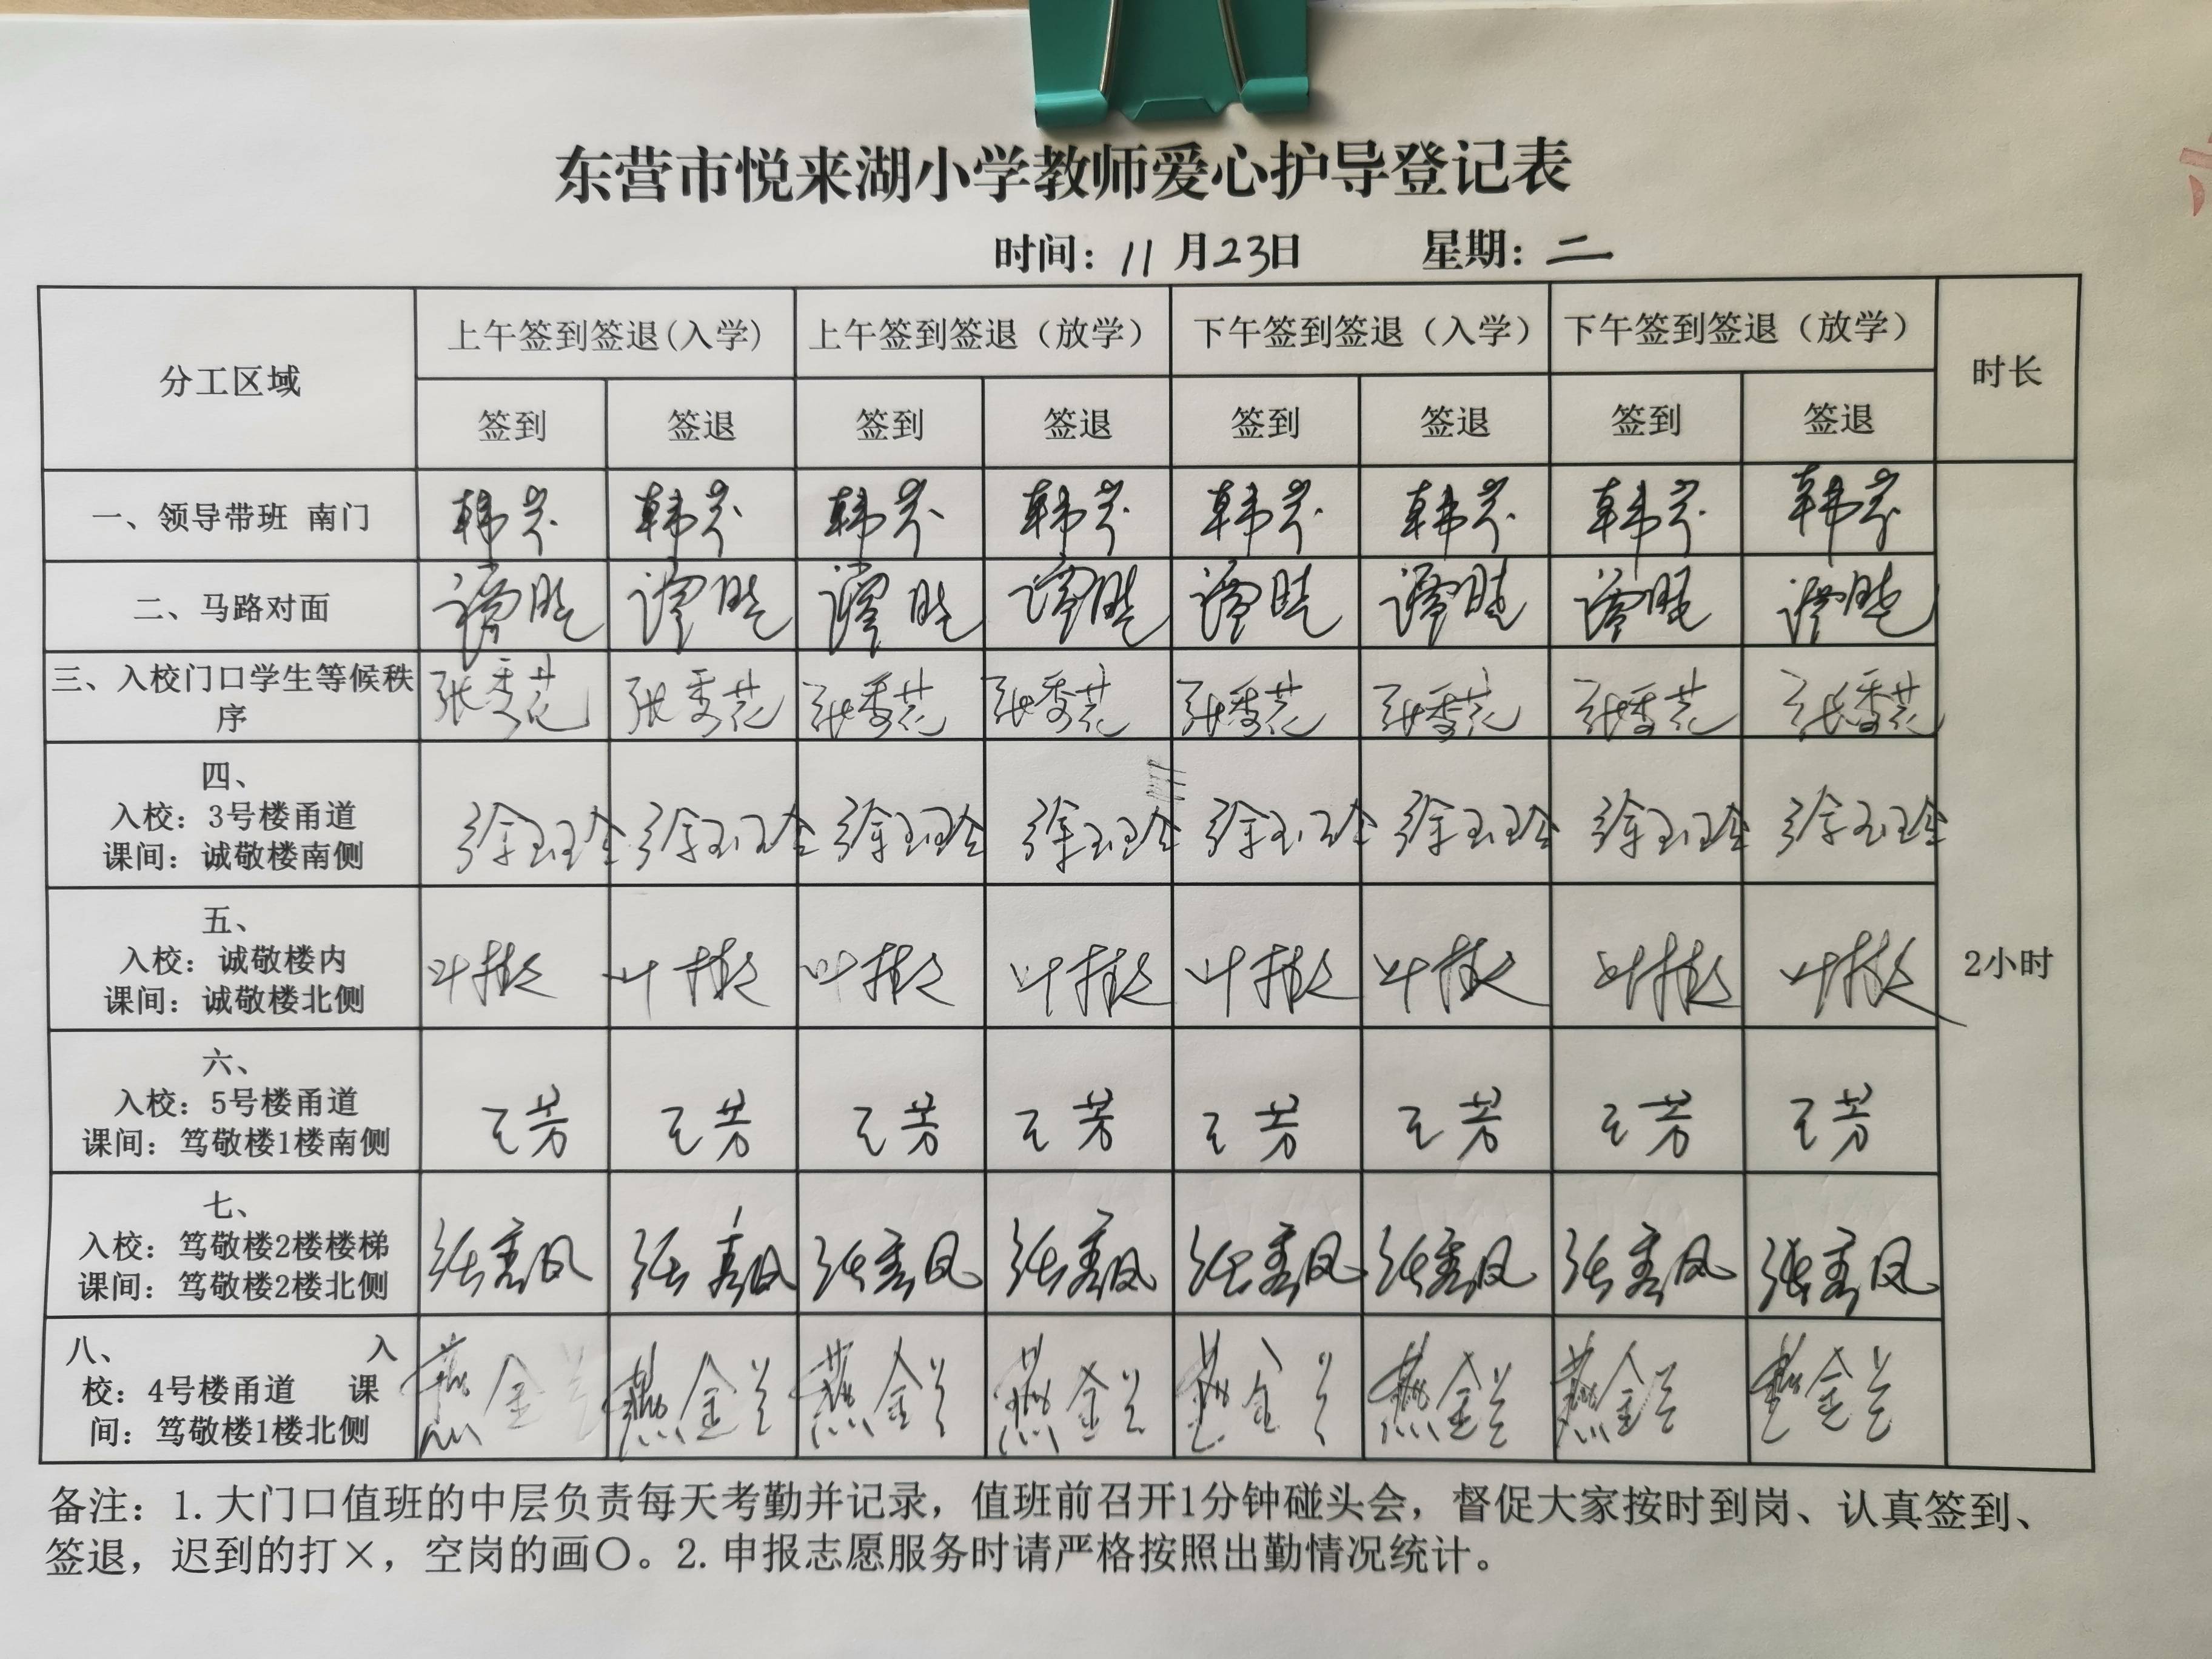 东营市悦来湖小学教师爱心护导登记表
时间：11月23日 星期：二
分工区域 上午签到签退(入学) 上午签到签退（放学） 下午签到签退（入学） 下午签到签退（放学） 时长
签到 签退 签到 签退 签到 签退 签到 签退
一、领导带班 南门 韩芬 韩芬 韩芬 韩芬 韩芬 韩芬 韩芬 韩芬
二、马路对面
三、入校门口学生等候秩
序
张秀花 张秀花 张秀花 张秀花 张秀花 张秀花 张秀花 张秀花
四、
入校：3号楼甬道
课间：诚敬楼南侧
徐玉玲 徐玉玲 徐玉玲 徐玉玲 徐玉玲 徐玉玲 徐玉玲 徐玉玲
五、
入校：诚敬楼内
课间：诚敬楼北侧
2小时
六、
入校：5号楼甬道
课间：笃敬楼1楼南侧
王芳 王芳 王芳 王芳 王芳 王芳 王芳 王芳
七、
入校：笃敬楼2楼楼梯
课间：笃敬楼2楼北侧
张秀凤 张秀凤 张秀凤 张秀凤 张秀凤 张秀凤 张秀凤 张秀凤
八、 入
校：4号楼甬道 课
间：笃敬楼1楼北侧
燕金兰 燕金兰 燕金兰 燕金兰 燕金兰 燕金兰 燕金兰 燕金兰
备注：1.大门口值班的中层负责每天考勤并记录，值班前召开1分钟碰头会，督促大家按时到岗、认真签到、
签退，迟到的打×，空岗的画〇。2.申报志愿服务时请严格按照出勤情况统计。